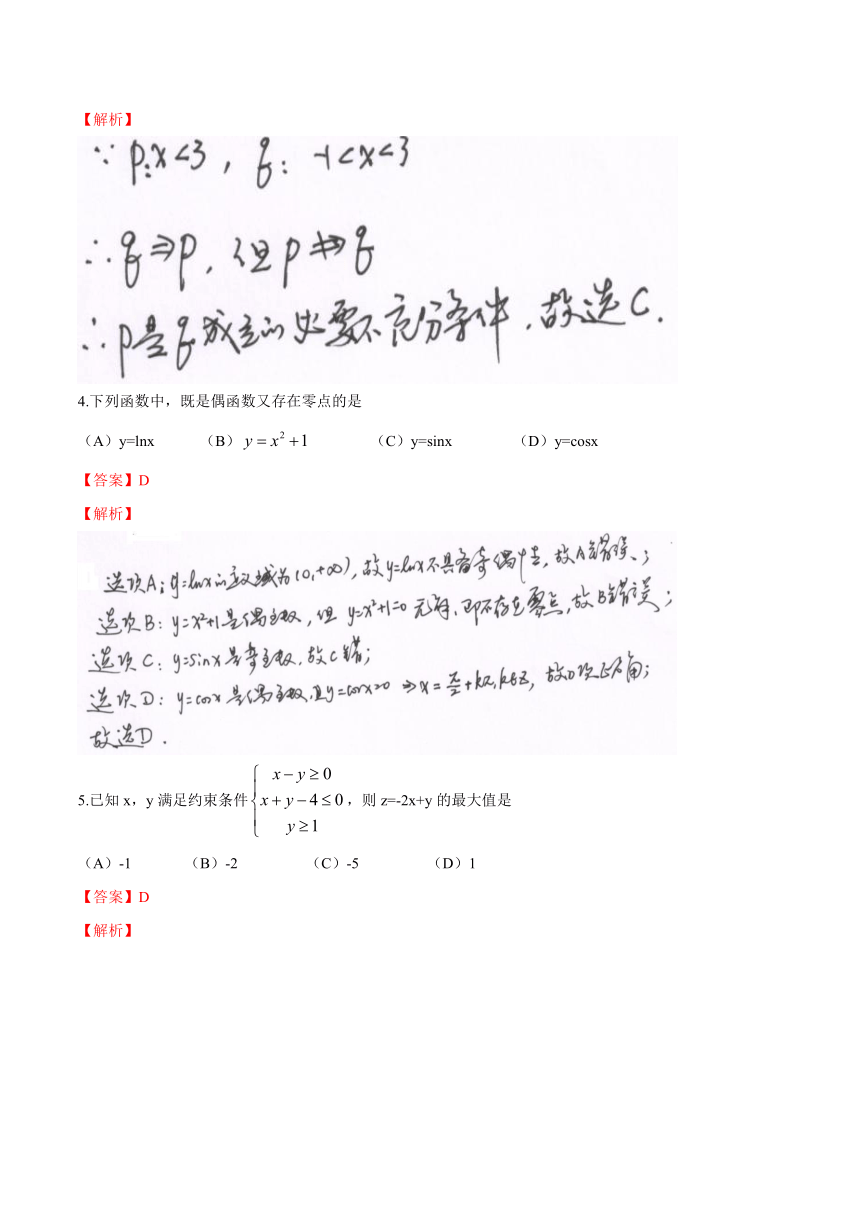 【解析】
∵ p:x<3，q: -1<x<3
∴q⇒p，但p⇏q
∴p是q成立的必要不充分条件，故选C.
4.下列函数中，既是偶函数又存在零点的是
（A）y=lnx （B）y=x²+1 （C）y=sinx （D）y=cosx
【答案】D
【解析】
选项A：y=lnx的定义域为(0,+∞)，故y=lnx不具备奇偶性，故A错误；
选项B：y=x²+1是偶函数，但 y=x²+1=0 无解，即不存在零点，故B错误；
选项C：y=sinx是奇函数，故C错；
选项D：y=cosx是偶函数，且y=cosx=0 ⇒x=π/2+kπ,k∈Z，故D项正确；
故选D.
5.已知x，y满足约束条件{x-y≥0
x+y-4≤0，则z=-2x+y的最大值是
y≥1
（A）-1 （B）-2 （C）-5 （D）1
【答案】D
【解析】